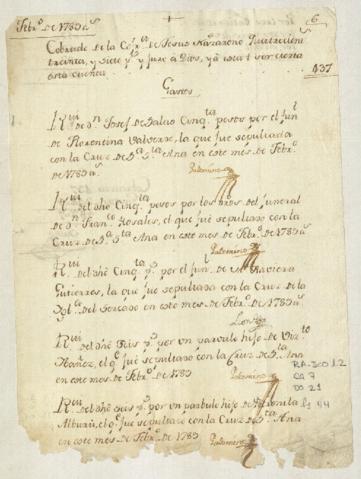 Febr.o de 1783 a.s
6
Cobranza de la Co.n de Jesus Nazareno Quatrocien.s
treinta, y siete p.s y juro à Dios, y à esta + ser cierta
esta cuenta
437
Gastos
Rui de D.n Josef de Salvo Cinq.ta pesos por el fun.l
de Florentina Valverde, la que fue sepultada
con la Cruz de S.ta Ana en este mes de Febr.o
de 1783 a.s
Palomino
Rui del dho Cinq.ta pesos por los dros del funeral
de D.n Fran.co Rosales, el que fue sepultado con la
Cruz de S.ta Ana en este mes de Febr.o de 1783 a.s
Palomino
Rui del dho Cinq.ta p.s por el fun.l de
Gutierres, la que fue sepultada con la Cruz de la
Ygl.a del Sercado en este mes de Febr.o de 1783 a.s
Rui del dho Seis p.s por un parbulo hijo de
Ibañez, el q.e fue sepultado con la Cruz de S.ta Ana
en este mes de Febr.o de 1783
Palomino
Rui del dho Seis p.s por un parbulo hijo de
el q.e fue sepultado con la Cruz de S.ta Ana
en este mes de Febr.o de 1783
Palomino
CA 7
DO 21